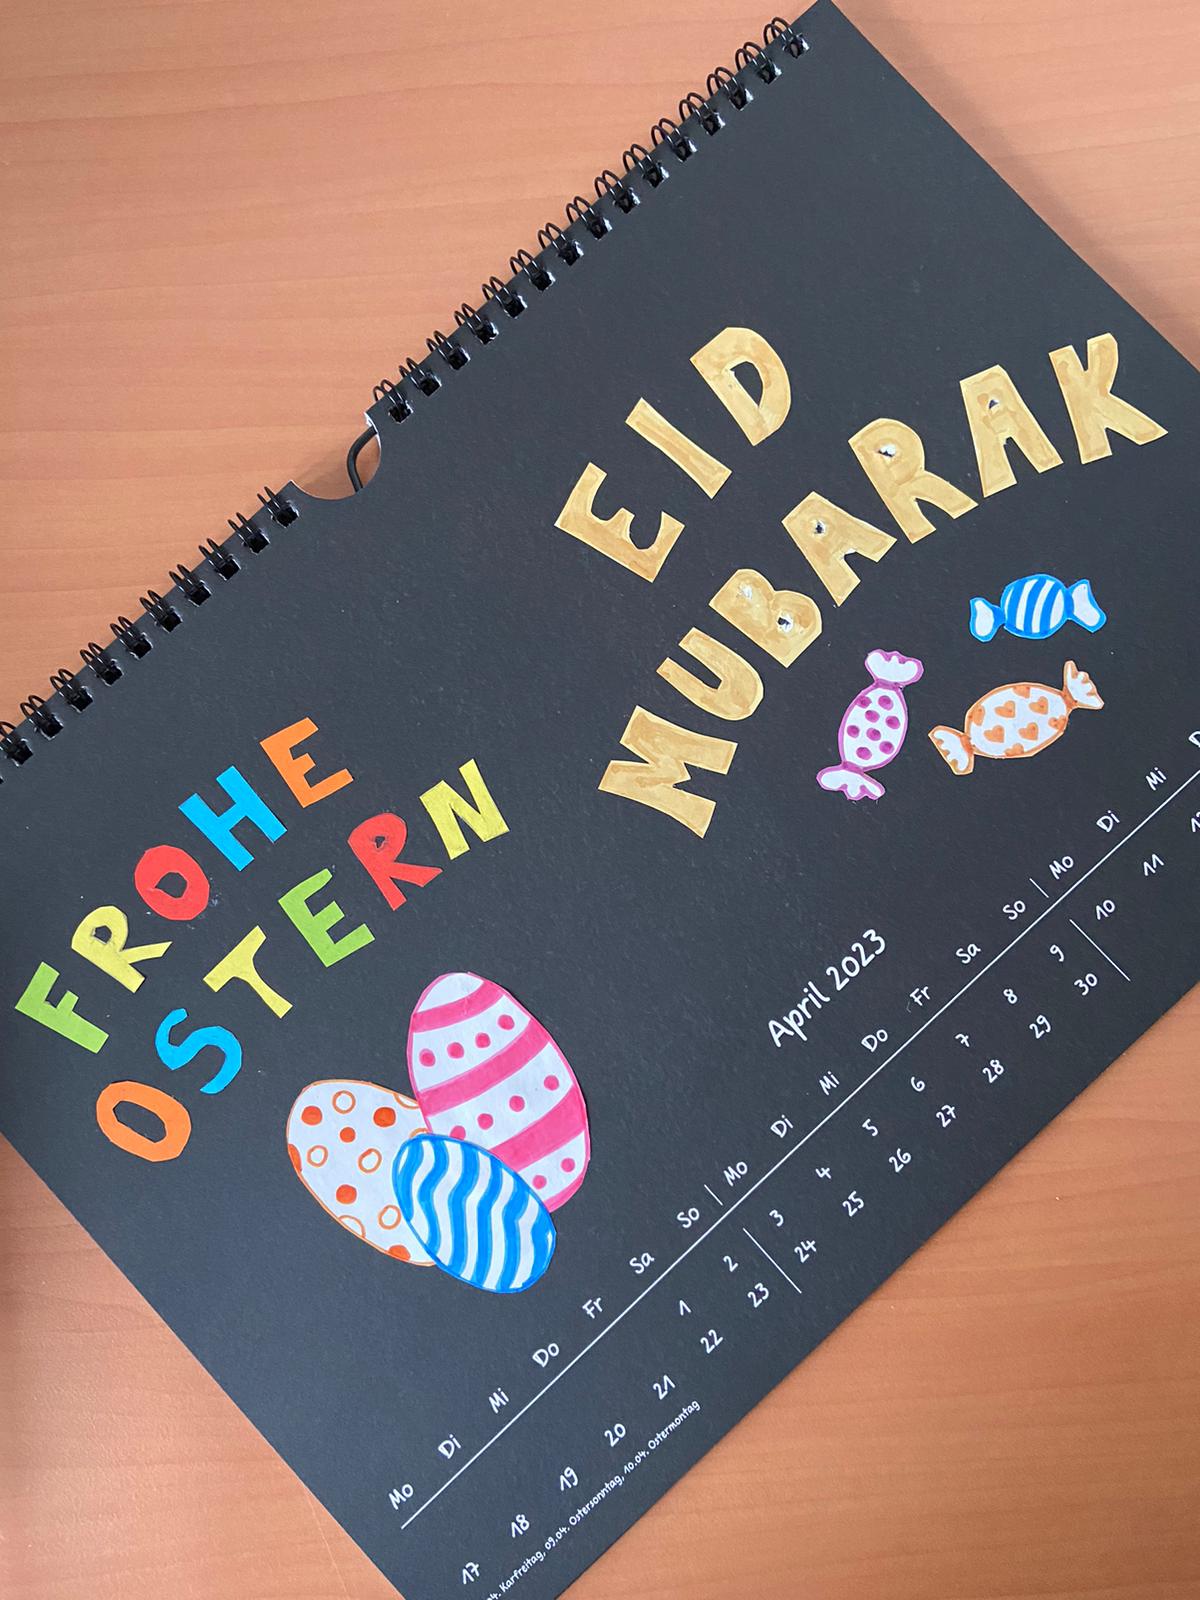 FROHE
OSTERN
EID
MUBARAK
April 2023
Mo Di Mi Do Fr Sa So | Mo Di Mi Do Fr Sa So | Mo Di Mi
1 2 3 4 5 6 7 8 9 10 11
17 18 19 20 21 22 23 24 25 26 27 28 29 30
Karfreitag, 09.04. Ostersonntag, 10.04. Ostermontag